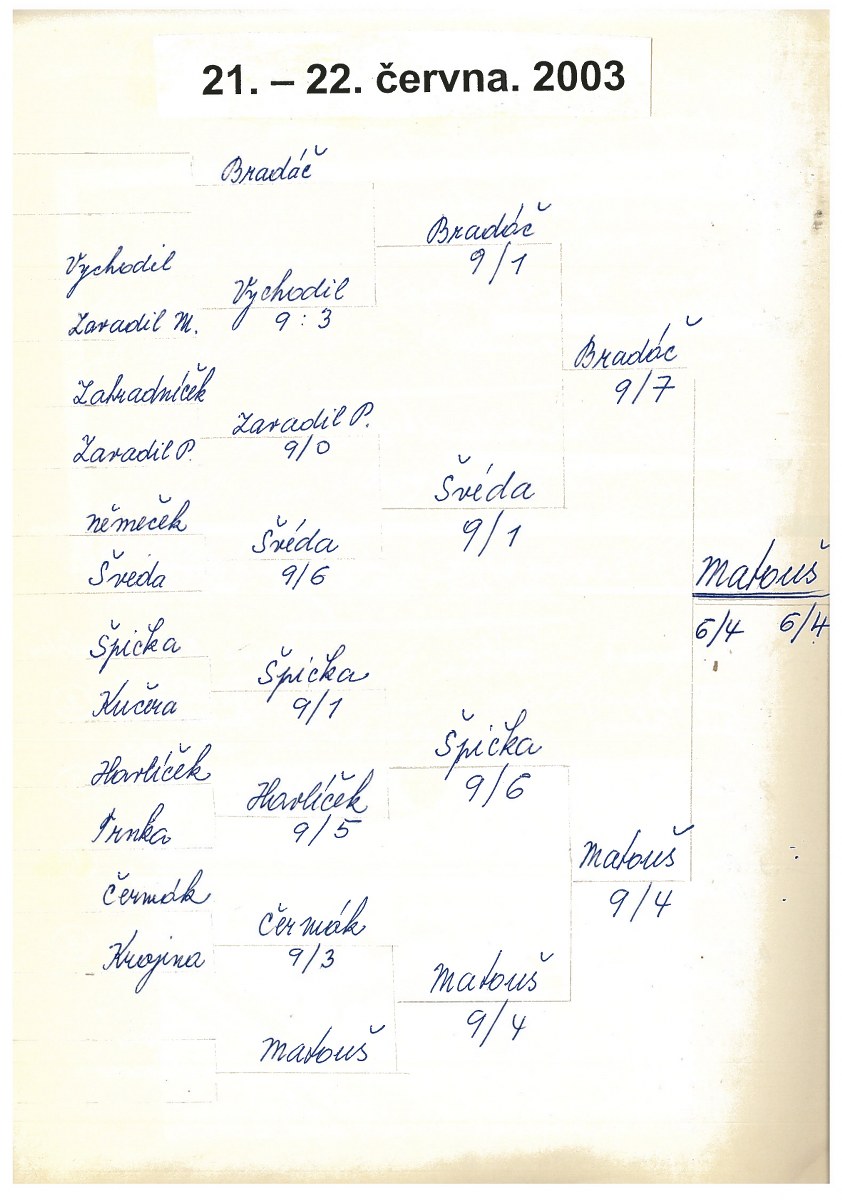 21. – 22. června. 2003
Bradáč
Bradáč
9/1
Vychodil
Vychodil
9 : 3
Zavadil M.
Bradáč
9/7
Zahradníček
Zavadil P.
9/0
Zavadil P.
Švéda
9/1
Němeček
Švéda
9/6
Švéda
Matouš
6/4 6/4
Špička
Špička
9/1
Kučera
Špička
9/6
Havlíček
Havlíček
9/5
Trnka
Matouš
9/4
Čermák
Čermák
9/3
Krojina
Matouš
9/4
Matouš